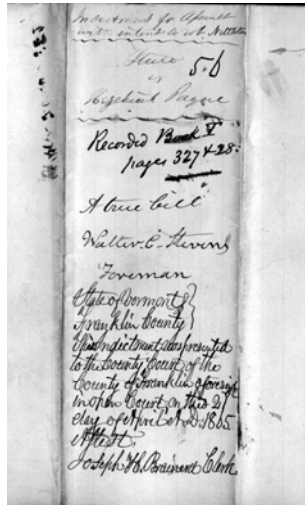 Indictment for Assault
with intent to rob Nettleton
State 5.6
vs
Hezekiah Payne
Recorded Book V
pages 327 & 28.
A true bill
Walter C. Stevens
Foreman
State of Vermont
Franklin County
This Indictment was presented
to the County Court of the
County of Franklin aforesaid
in open Court on this 21
day of April A.D. 1865
Attest
Joseph H. Brainerd Clerk